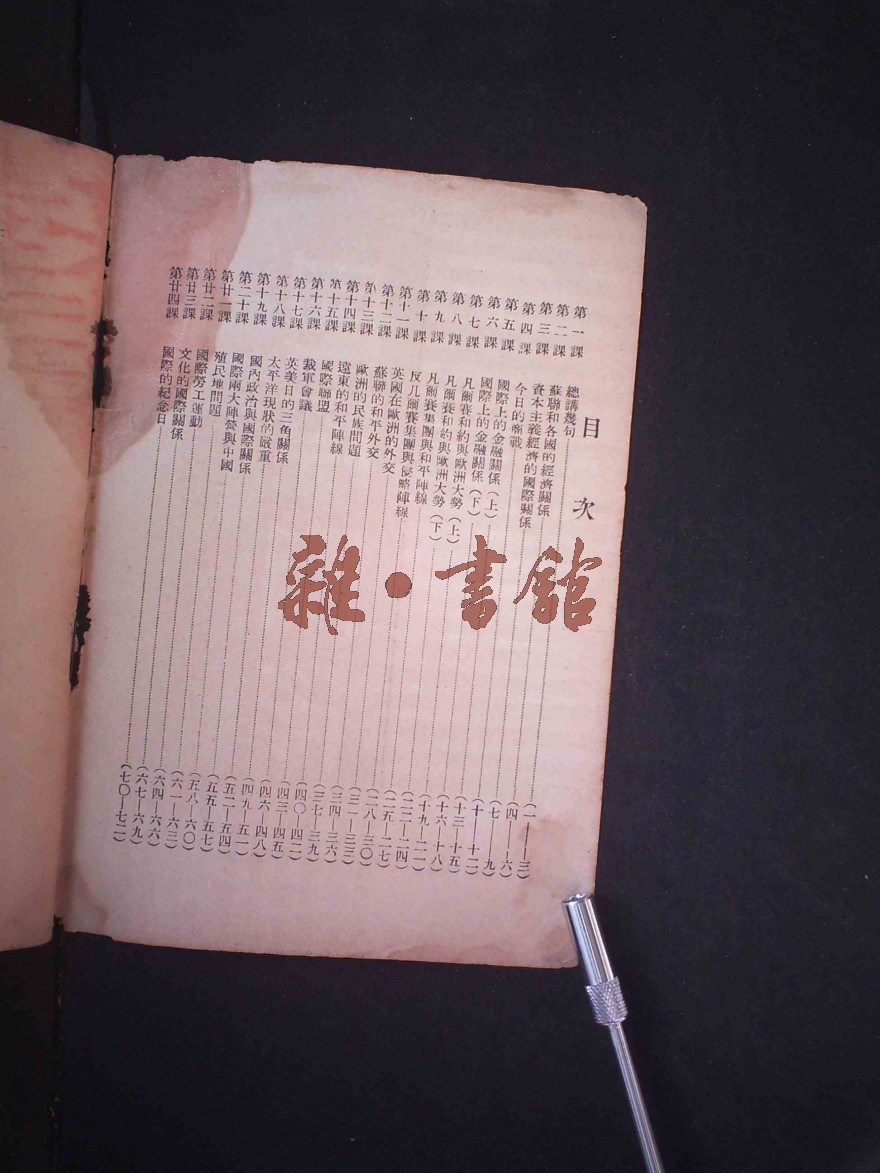 目次
第一課 總講幾句……(一—三)
第二課 蘇聯和各國的經濟關係……(四—六)
第三課 資本主義經濟的國際關係……(七—九)
第四課 今日的商戰……(十—十二)
第五課 國際上的金融關係(上)……(十三—十五)
第六課 國際上的金融關係(下)……(十六—十八)
第七課 凡爾賽和約與歐洲大勢(上)……(十九—二一)
第八課 凡爾賽和約與歐洲大勢(下)……(二二—二四)
第九課 凡爾賽集團與和平陣線……(二五—二七)
第十課 反凡爾賽集團與侵略陣線……(二八—三〇)
第十一課 英國在歐洲的外交……(三一—三三)
第十二課 蘇聯的和平外交……(三四—三六)
第十三課 歐洲的民族問題……(三七—三九)
第十四課 遠東的和平陣線……(四〇—四二)
第十五課 國際聯盟……(四三—四五)
第十六課 裁軍會議……(四六—四八)
第十七課 英美日的三角關係……(四九—五一)
第十八課 太平洋現狀的嚴重……(五二—五四)
第十九課 國內政治與國際關係……(五五—五七)
第二十課 國際兩大陣營與中國……(五八—六〇)
第廿一課 殖民地問題……(六一—六三)
第廿二課 國際勞工運動……(六四—六六)
第廿三課 文化的國際關係……(六七—六九)
第廿四課 國際的紀念日……(七〇—七二)
雜·書館